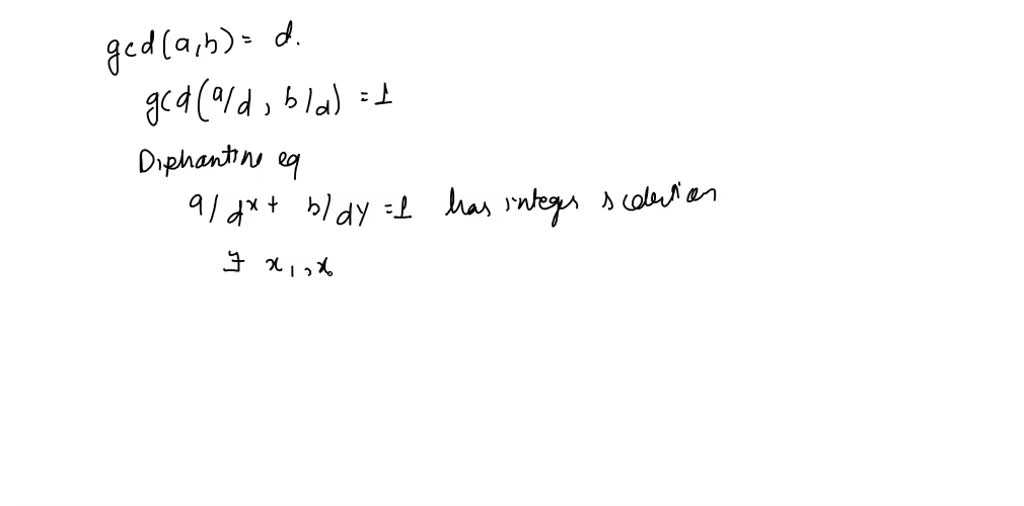 gcd(a,b) = d.
gcd(a/d, b/d) = 1
Diphantine eq
a/d x + b/d y = 1 has integer solution
∃ x₁, x₀